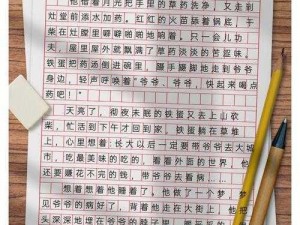 他借着月光把手里的草药洗净,又走到
灶堂前添水加药。红红的火苗舔着锅底,干
柴在灶膛里噼啪啪地响着。只一会儿功
夫,屋里屋外就飘满了草药淡淡的苦涩味,
铁蛋把药汤倒进碗里,蹑手蹑脚地走到爷爷
身边,轻声呼唤着“爷爷,爷爷,快起来喝点
药吧!”
天亮了,彻夜未眠的铁蛋又去上山砍
柴,忙活到下午才回到家,铁蛋躺在草堆
上,心里想着:长大以后一定要带爷爷去大城
市,吃最美味的吃的,看着外面的世界,他
还要赚花不完的钱,带爷爷回家……
想着想着他睡着了,他做了一个梦,梦
见爷爷的病好了,背着他走在大街上,他把
头深深地埋在爷爷的脖子里